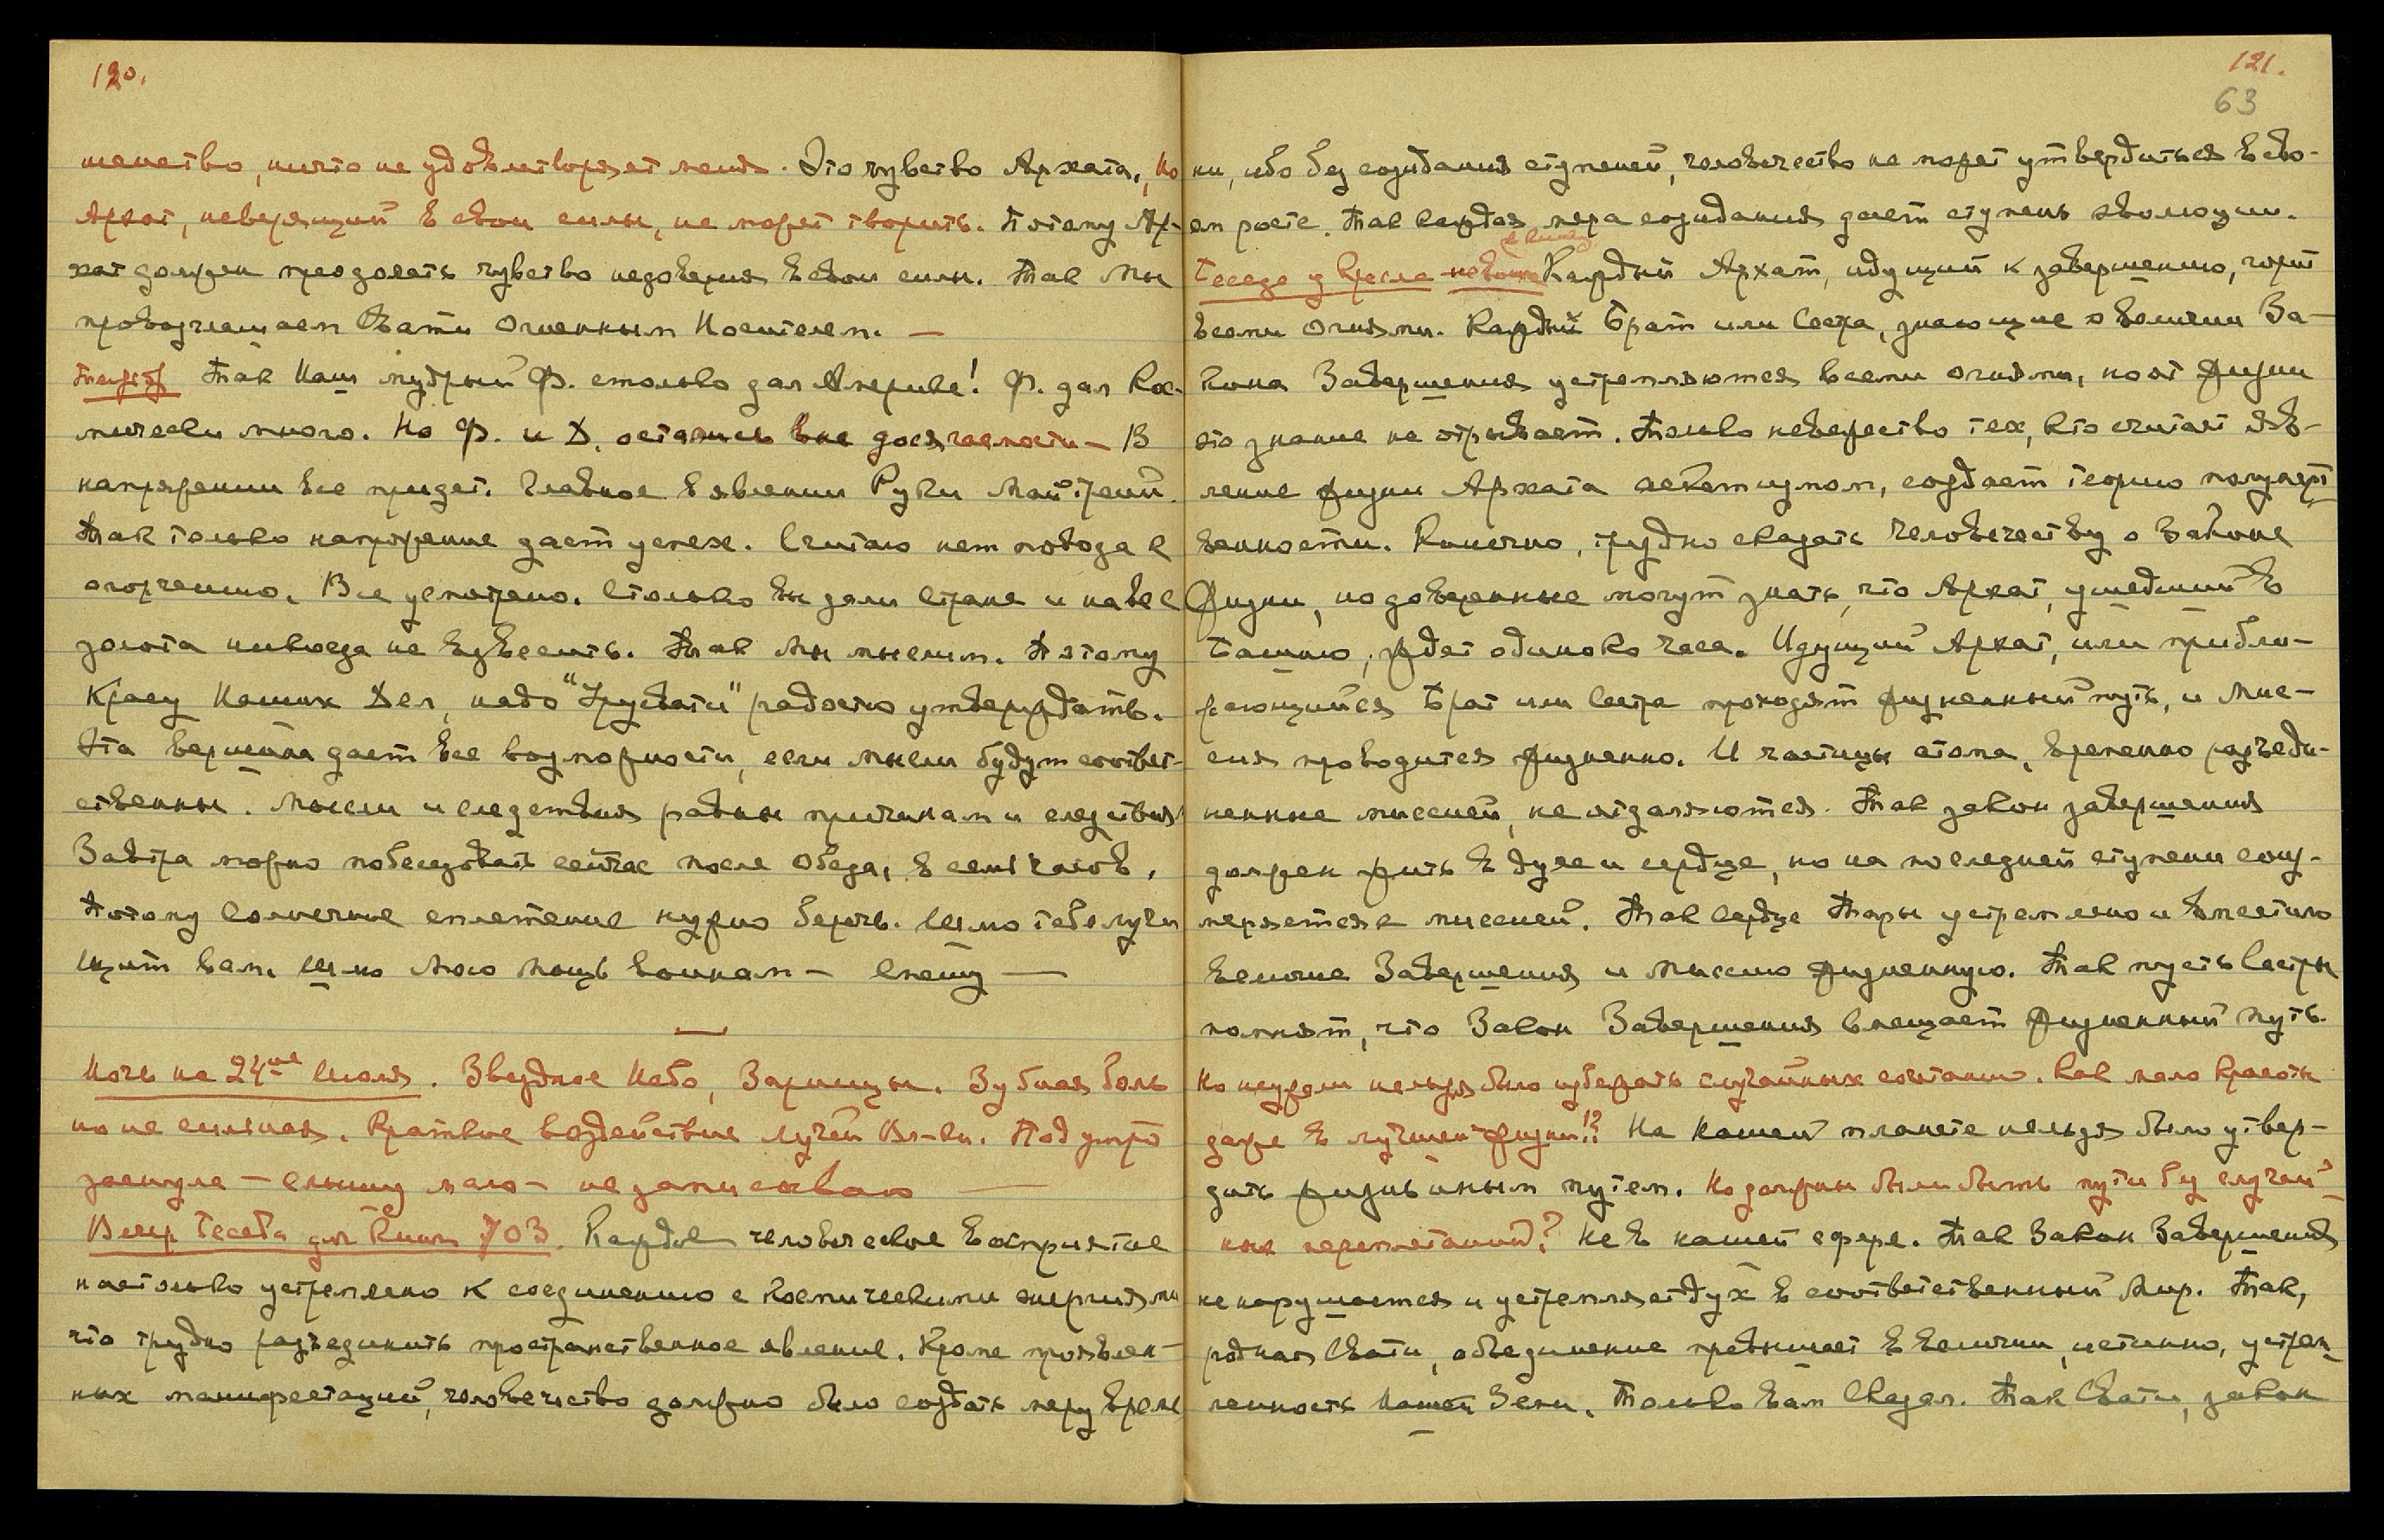 120.
шенство, ничто не удовлетворяет меня. Это чувство Архата, но
Архат, неверящий в свои силы, не может творить. Потому Ар-
хат должен преодолеть чувство недоверия в свои силы. Так Мы
провозглашаем Свати Огненным Носителем. —
Так Наш мудрый Ф. столько дал Америке! Ф. дал Кос-
мически много. Но Ф. и Д. остались вне досягаемости — В
напряжении все придет. Главное в явлении Руки Майтрейи.
Так только напряжение дает успех. Считаю нет повода к
огорчению. Все усмотрено. Столько вы дали Стране и на все
золота никогда не взвесить. Так Мы мыслим. Поэтому
Красу Наших Дел, надо "Урусвати" радостно утверждать.
Эта вершина дает все возможности, если мысли будут соответ-
ственны. Мысли и следствия равны причинам и следствия
Завтра можно побеседовать сейчас после обеда, в семь часов.
Потому Солнечное сплетение нужно беречь. Шлю тебе лучи
щит вам. Шлю Мою Мощь воинам — Спешу —
Ночь на 24ое Июля. Звездное Небо, Зарницы. Зубная боль
но не сильная. Краткое воздействие лучей Вл-ки. Под утро
заснула — слышу мало — не записываю —
Вечер Беседа для Книги 703. Каждое человеческое восприятие
настолько устремлено к соединению с космическими энергиями
что трудно разъединить пространственное явление. Кроме проявлен-
ных манифестаций, человечество должно было создать меру время
121.
63
ни, ибо без созидания ступеней, человечество не может утвердиться в сво-
ем росте. Так каждая мера созидания дает ступень эволюции.
Беседа у Кресла Каждый Архат, идущий к завершению, горит
всеми огнями. Каждый Брат или Сестра, знающие о величии За-
кона Завершения устремляются всеми огнями, но от жизни
это знание не отрывает. Только невежество тех, кто считает яв-
ление жизни Архата аскетизмом, создает теорию полумерт-
венности. Конечно, трудно сказать Человечеству о Законе
Жизни, но доверенные могут знать, что Архат, ушедший в
Башню, ждет одиноко часа. Идущий Архат, или прибли-
жающийся Брат или Сестра проходят жизненный путь, и Мис-
сия проводится жизненно. И частицы атома, временно разъеди-
ненные миссией, не отдаляются. Так закон завершения
должен жить в духе и сердце, но на последней ступени соиз-
меряется с миссией. Так Сердце Тары устремлено и вместило
величие Завершения и Миссию жизненную. Так пусть Сестры
помнят, что Закон Завершения вмещает жизненный путь.
Но неужели нельзя было избежать случайных сочетаний. Как мало Красоты
даже в лучшей жизни!? На вашей планете нельзя было утвер-
дить жизнь иным путем. Но должны были быть пути без случай-
ных переплетаний? Не в нашей сфере. Так Закон Завершения
не нарушается и устремляет дух в соответственный Мир. Так,
родная Свати, объединение превышает в величии, истинно, устрем-
ленность Нашей Земли. Только вам Сказал. Так Свати, закон